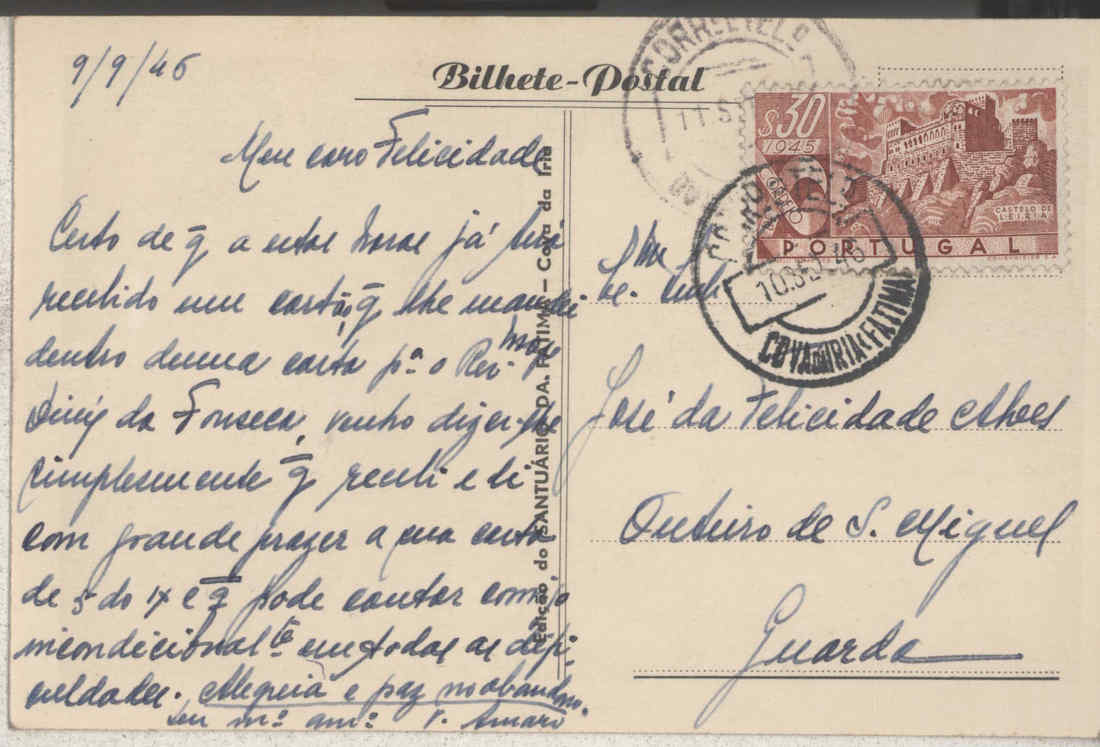 9/9/46
Bilhete-Postal
Meu caro Felicidade
Certo de q̄ a estas horas já terá
recebido um cartão q̄ lhe mandei
dentro duma carta p.ª o Rev.mo
Diniz da Fonseca, venho dizer-lhe
cimplesmente q̄ recebi e li
com grande prazer a sua carta
de 5 do IX e q̄ pode contar comigo
incondicional.te em todas as difi-
culdades. Alegria e paz no abandono.
Seu m.º am.º P. Amaro
Edição do SANTUÁRIO DA FÁTIMA – Cova da Iria
CORR. E TELEG
11 S
$30
1945
CASTELO DE
LEIRIA
PORTUGAL
10 SET 46
COVA DA IRIA (FATIMA)
José da Felicidade Alves
Outeiro de S. Miguel
Guarda